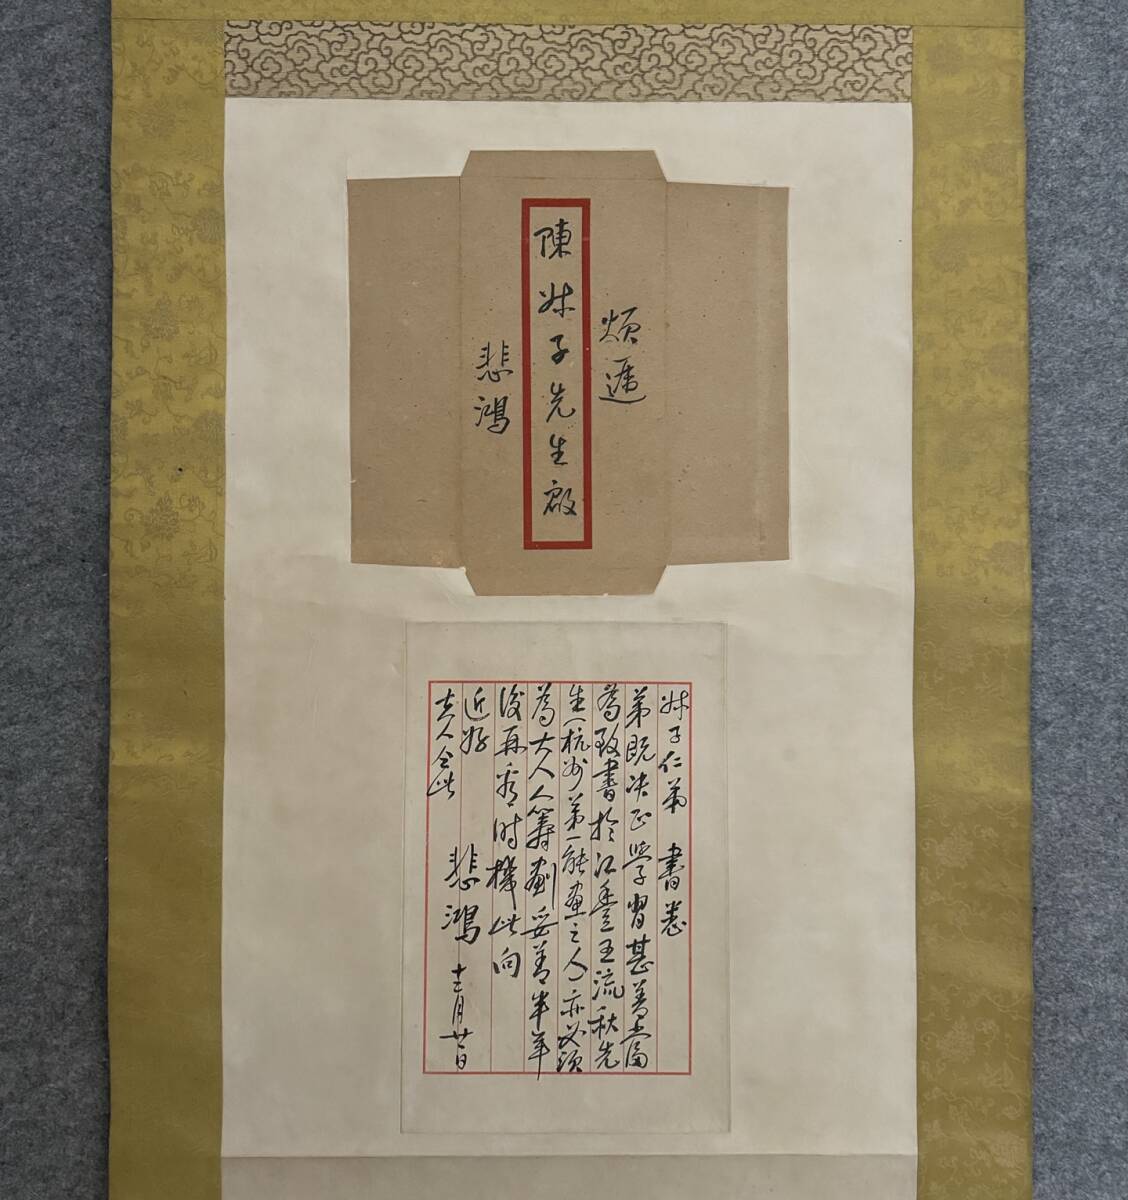 煩遞
陳妹子先生啟
悲鴻
妹子仁弟 書悉
弟既决正學習甚善當
為致書於江豐王流秋先
生(杭州第一能畫之人)亦必須
為大人人籌劃妥善半年
後再看時機此向
近好
夫人仝此
悲鴻 十二月廿日